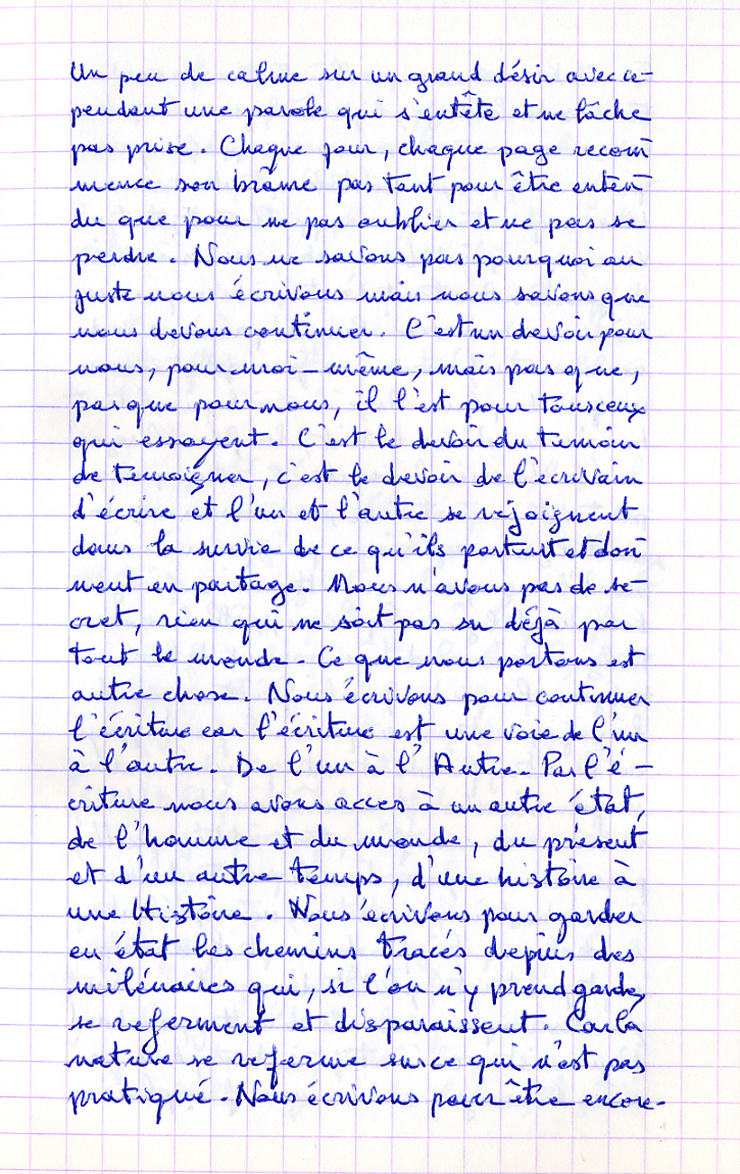 Un peu de calme sur un grand désir avec ce-
pendant une parole qui s'entête et ne lâche
pas prise. Chaque jour, chaque page recom
mence son brâme pas tant pour être enten
du que pour ne pas oublier et ne pas se
perdre. Nous ne savons pas pourquoi au
juste nous écrivons mais nous savons que
nous devons continuer. C'est un devoir pour
nous, pour moi-même, mais pas que,
pas que pour nous, il l'est pour tous ceux
qui essayent. C'est le devoir du temoin
de temoigner, c'est le devoir de l'écrivain
d'écrire et l'un et l'autre se rejoignent
dans la survie de ce qu'ils portent et don
nent en partage. Nous n'avons pas de se-
cret, rien qui ne soit pas su déjà par
tout le monde. Ce que nous portons est
autre chose. Nous écrivons pour continuer
l'écriture car l'écriture est une voie de l'un
à l'autre. De l'un à l'Autre. Par l'é-
criture nous avons acces à un autre état,
de l'homme et du monde, du présent
et d'un autre temps, d'une histoire à
une Histoire. Nous écrivons pour garder
en état les chemins tracés depuis des
milénaires qui, si l'on n'y prend garde,
se referment et disparaissent. Car la
nature se referme sur ce qui n'est pas
pratiqué. Nous écrivons pour être encore.